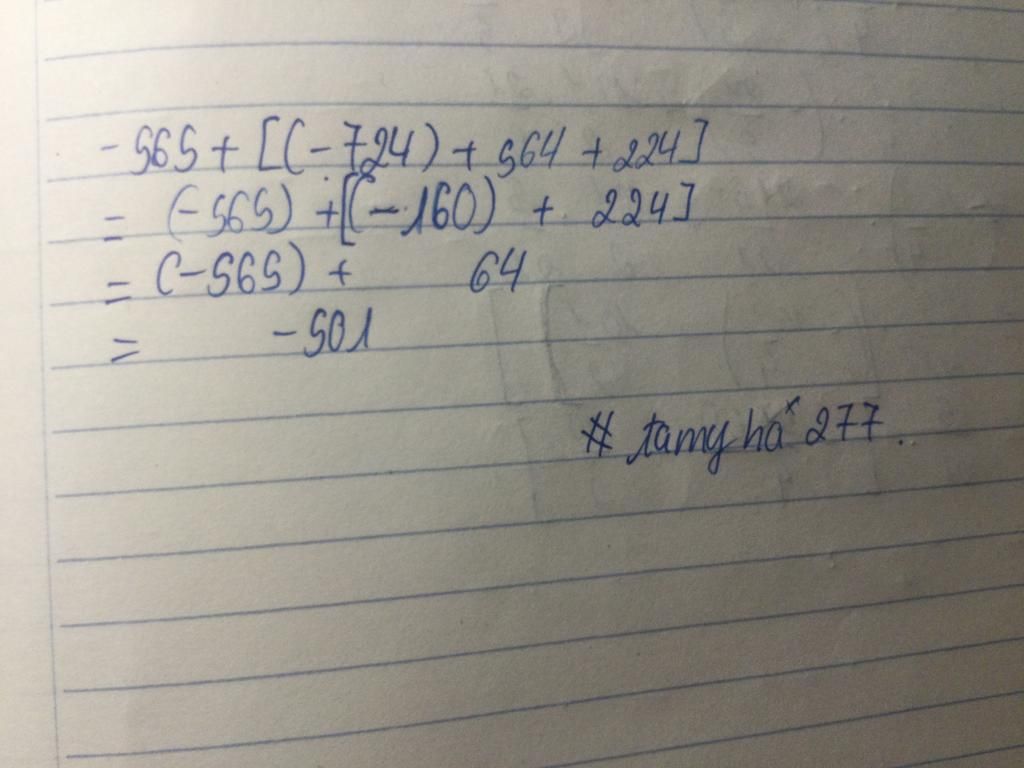 -565 + [(-724) + 564 + 224]
= (-565) + [(-160) + 224]
= (-565) + 64
= -501
# tamy hax 277.